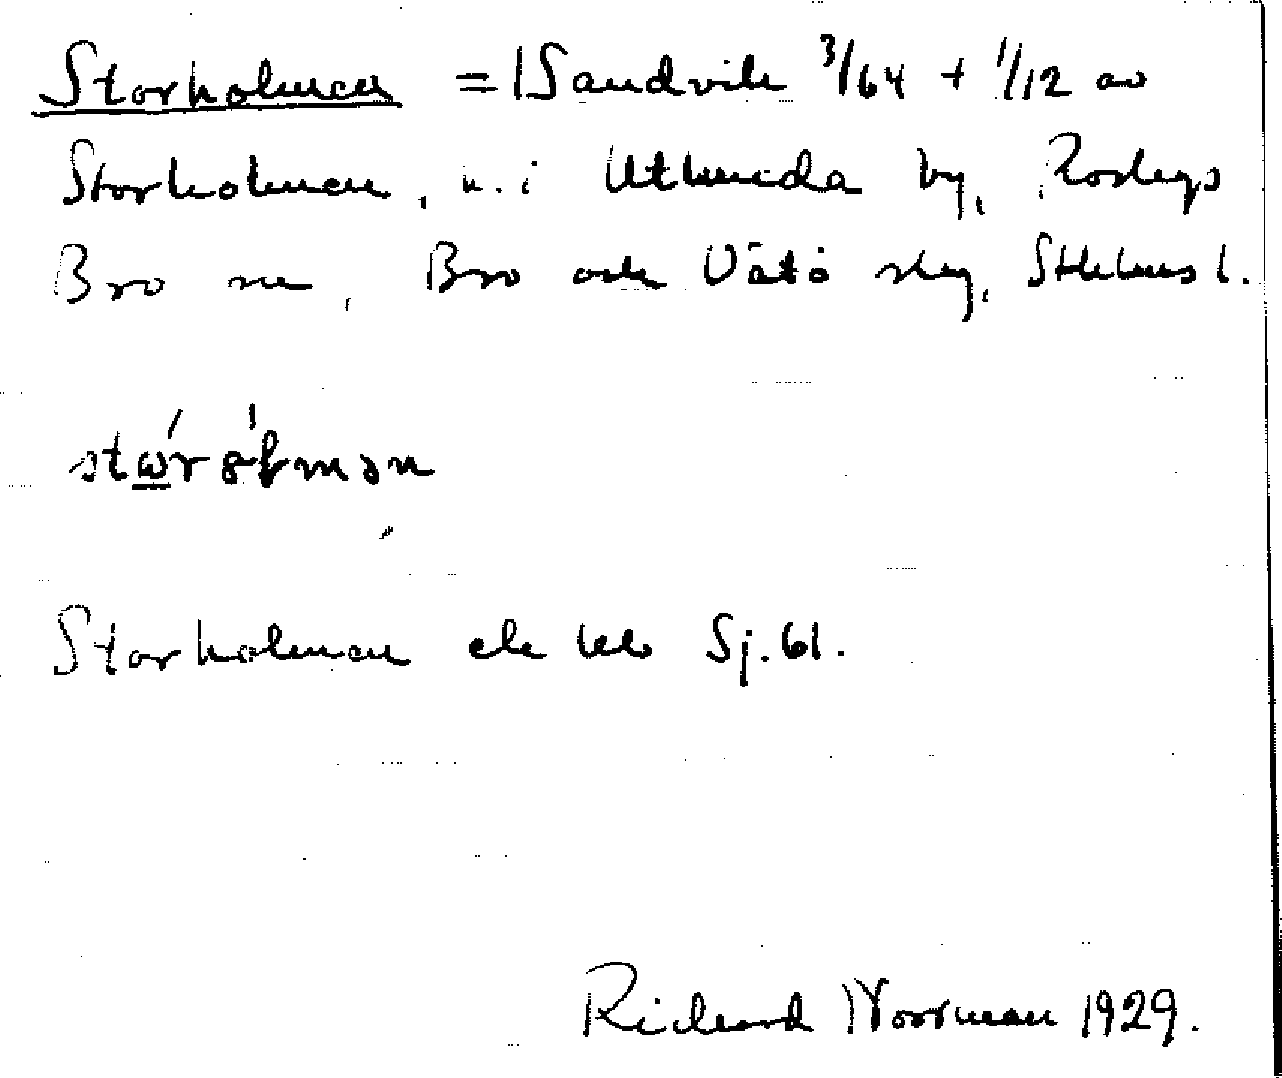 Storholmen = Sandvik 3/64 + 1/12 av
Storholmen, u. i Utlunda by, Roslags
Bro sn, Bro och Vätö skg, Sthlms l.
stώ̲rólmən
Storholmen ek bl. Sj. bl.
Richard Norrman 1929.